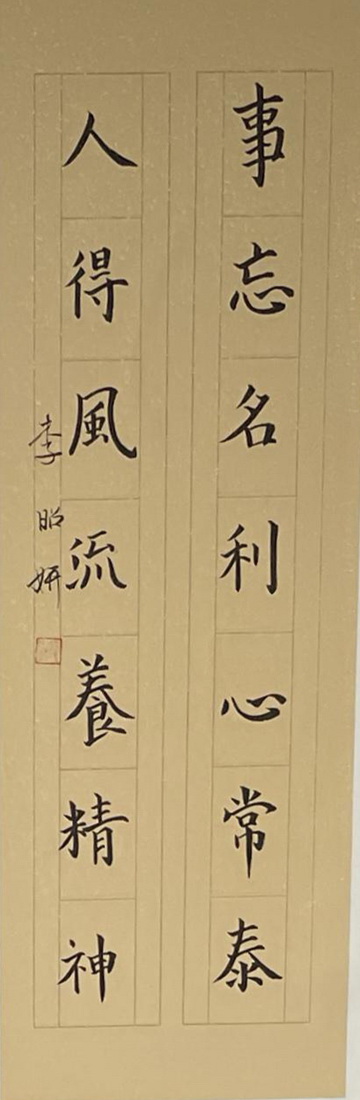 事忘名利心常泰
人得風流養精神
李昭妍